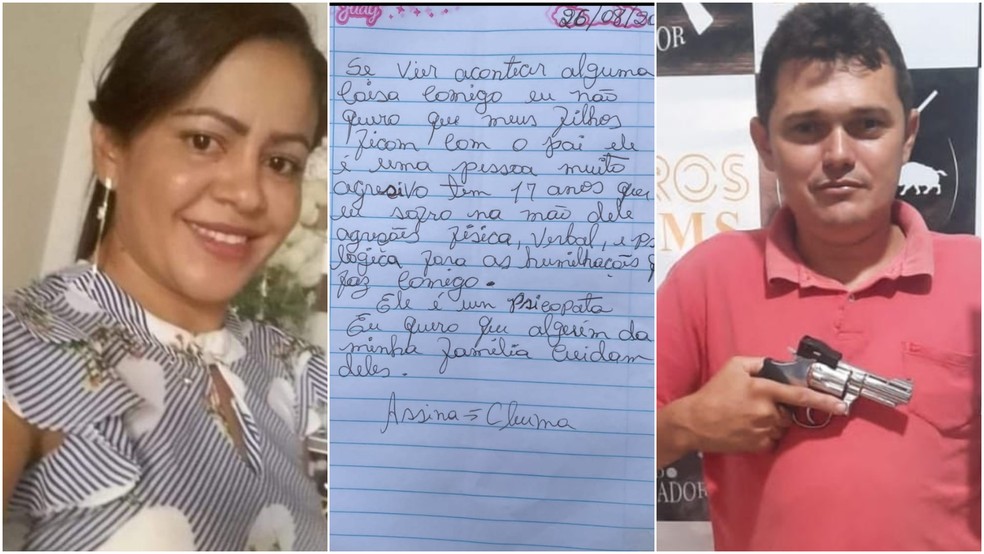 26/08/20
Se vier acontecer alguma
Coisa Comigo eu não
quero que meus filhos
ficam com o pai ele
é uma pessoa muito
agresivo tem 17 anos que
eu sofro na mão dele
agreções física, verbal, e ps
lógica fora as humilhações q
faz comigo.
Ele é um Psicopata
Eu quero que alguem da
minha família Cuidam
deles.
Assina => Cleuma
OR
ROS
MS
ADOR